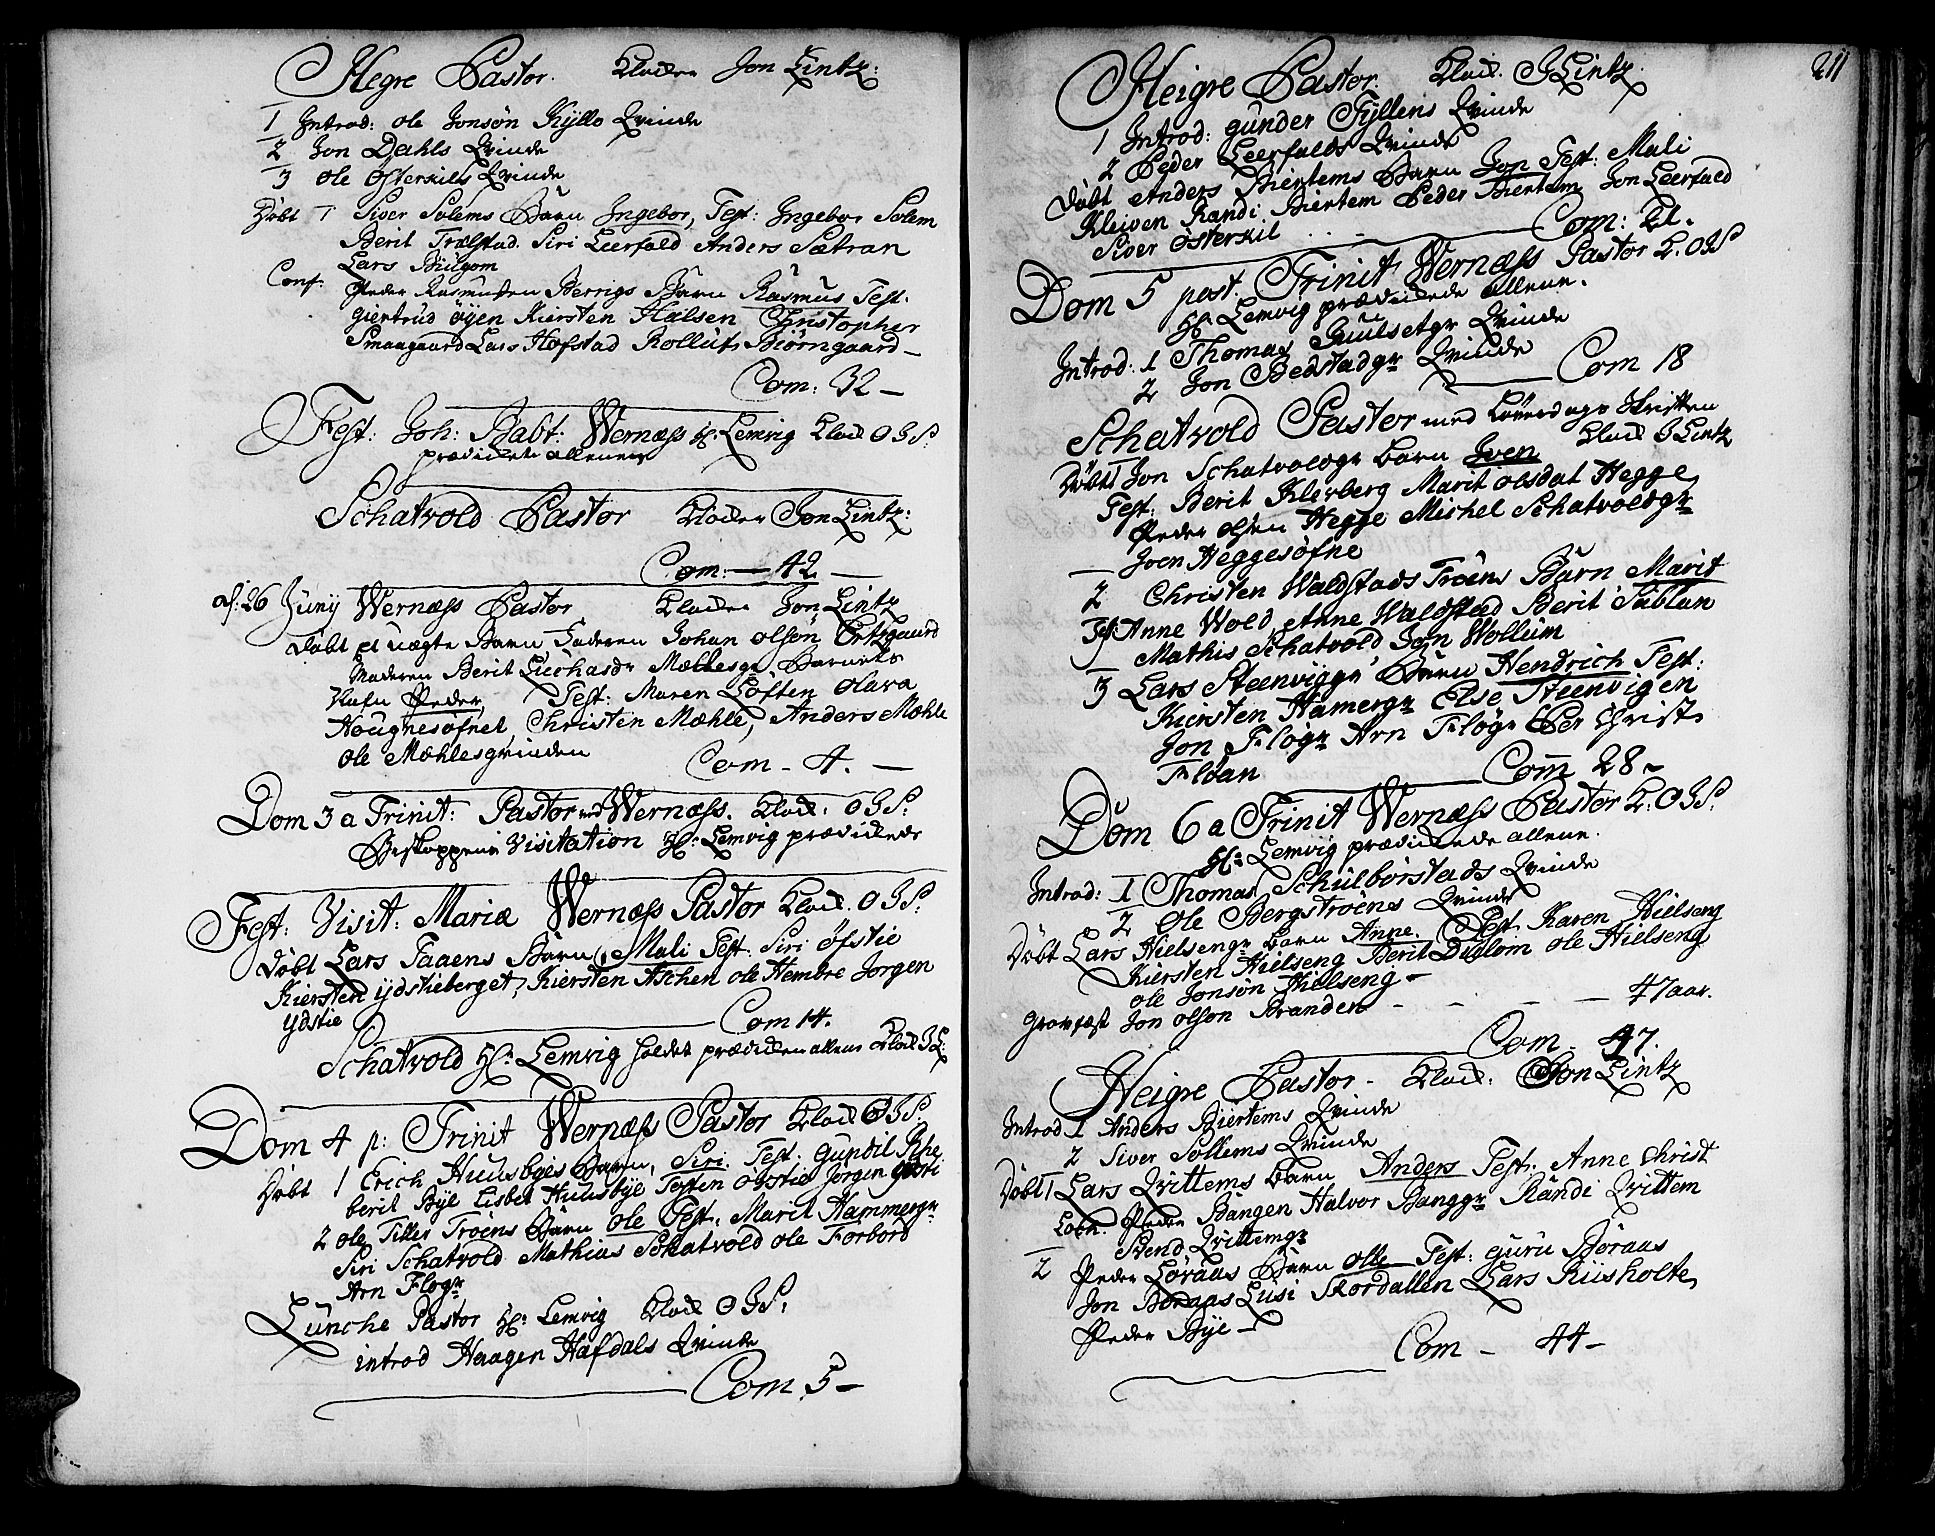 Hegre Pastor. Klocker Jon Lintz:
1 Introd: ole Jonsøn Kyllo Qvinde
2 Jon Dahls Qvinde
3 ole Østerkils Qvinde
Døbt 1 Siver Solems Barn Ingebor, Test: Ingebor Solem
Berit Trælstad Siri Leerfald Anders Sætran
Lars Biilgom
Conf: Peder Rasmusen Berrigs Barn Rasmus Test:
giertrud øyen Kiersten Halsen Christopher
Smaagaard Lars Hofstad Rolluf Biørngaard
Com: 32 —
Fest: Joh: Babt: Wernæss H: Lemvig Klock OBS:
prædickede allene
Schatvold Pastor Klocker Jon Lintz:
Com: — 42 —
d: 26 Juny Wernæss Pastor Klocker Jon Lintz
Døbt et uægte Barn Faderen Johan olsøn
Moderen Berit Barnets
Nafn Peder, Test: Maren Løften olava
Christen Mæhle, Anders Mæhle
ole Mæhlesgvinden
Com - 4. —
Dom 3 a Trinit: Pastor Wernæss. Klock: OBS:
Visitation H: Lemvig prædickede
Fest: Visit: Mariæ Wernæss Pastor Klock. OBS:
Døbt Lars Faaens Barn, Mali Test. Siri Øfstie
Kiersten ydstieberget, Kiersten Aschen ole Hembre Jorgen
ydstie
Com 14.
Schatvold H: Lemvig holdet prædicken allene Klock
Dom 4 p: Trinit Wernæss Pastor Klock OBS:
Døbt 1 Erich Huusbyes Barn, Siri. Test: gunbil
berit Bye Lisbet Huusbye Jorgen
2 ole Tiller Trøens Barn ole Test. Marit Hammergr
Siri Schatvold Mathias Schatvold ole Forbord
Arn Flogr
Lunche Pastor H: Lemvig Klock OBS:
introd Haagen Hafdals Qvinde
Com. 5 —
211
Heigre Pastor. Klock. J Lintz.
1 Introd: gunder Fyllens Qvinde
2 Peder Leerfalds Qvinde
Døbt Anders Biertems Barn Jon Test: Mali
Kleiven Randi Biertem Peder Biertem Jon Leerfald
Siver Østerkil
Com: 21.
Dom 5 post: Trinit Wernæss Pastor K: OBS
H: Lemvig prædickede allene.
Introd: 1 Thomas Qvinde
2 Jon Qvinde
Com 18
Schatvold Pastor med Løverdags Skriften
Klock J Lintz
Døbt 1 Jon Schatvoldgr barn Iven
Test: Berit Klerberg Marit olsdat Hegge
Peder olsen Hegge Michel Schatvoldgr
Joen Heggesøfne
2 Christen Waldstads Trøens Barn Marit
Anne Wold Anne Waldstad Berit
Mathis Schatvold Jon Wollum
3 Lars Steenviggr Barn Hendrich Test:
Kiersten Hamergr Else Steenvigen
Jon Flogr Arn Flogr Per Christ
Floan
Com 28 -
Dom 6 a Trinit Wernæss Pastor K: OBS:
H: Lemvig prædickede allene.
Introd: 1 Thomas Schulbørstads Qvinde
2 Ole Bergstrøens Qvinde
Døbt Lars Hielsengr barn Anne. Test. Karen Hielseng
Kiersten Hielseng Berit Dyglom ole Hielseng
ole Jonsøn Hielseng -
Jon olson Branden - - - — 47 aar.
Com - 47.
Heigre Pastor - Klock: Jon Lintz
Introd 1 Anders Biertems Qvinde
2 Siver Sollems Qvinde
Døbt 1 Lars Qvittems barn Anders Test: Anne Christ
Peder Bangen Halvor Banggr Randi Qvittem
Bend Qvittemgr
2 Peder Løraas Barn olle Test: guru Boraas
Jon Boraas Lusi Skordallen Lars Riisholte
Peder Bye —
Com - 44 -